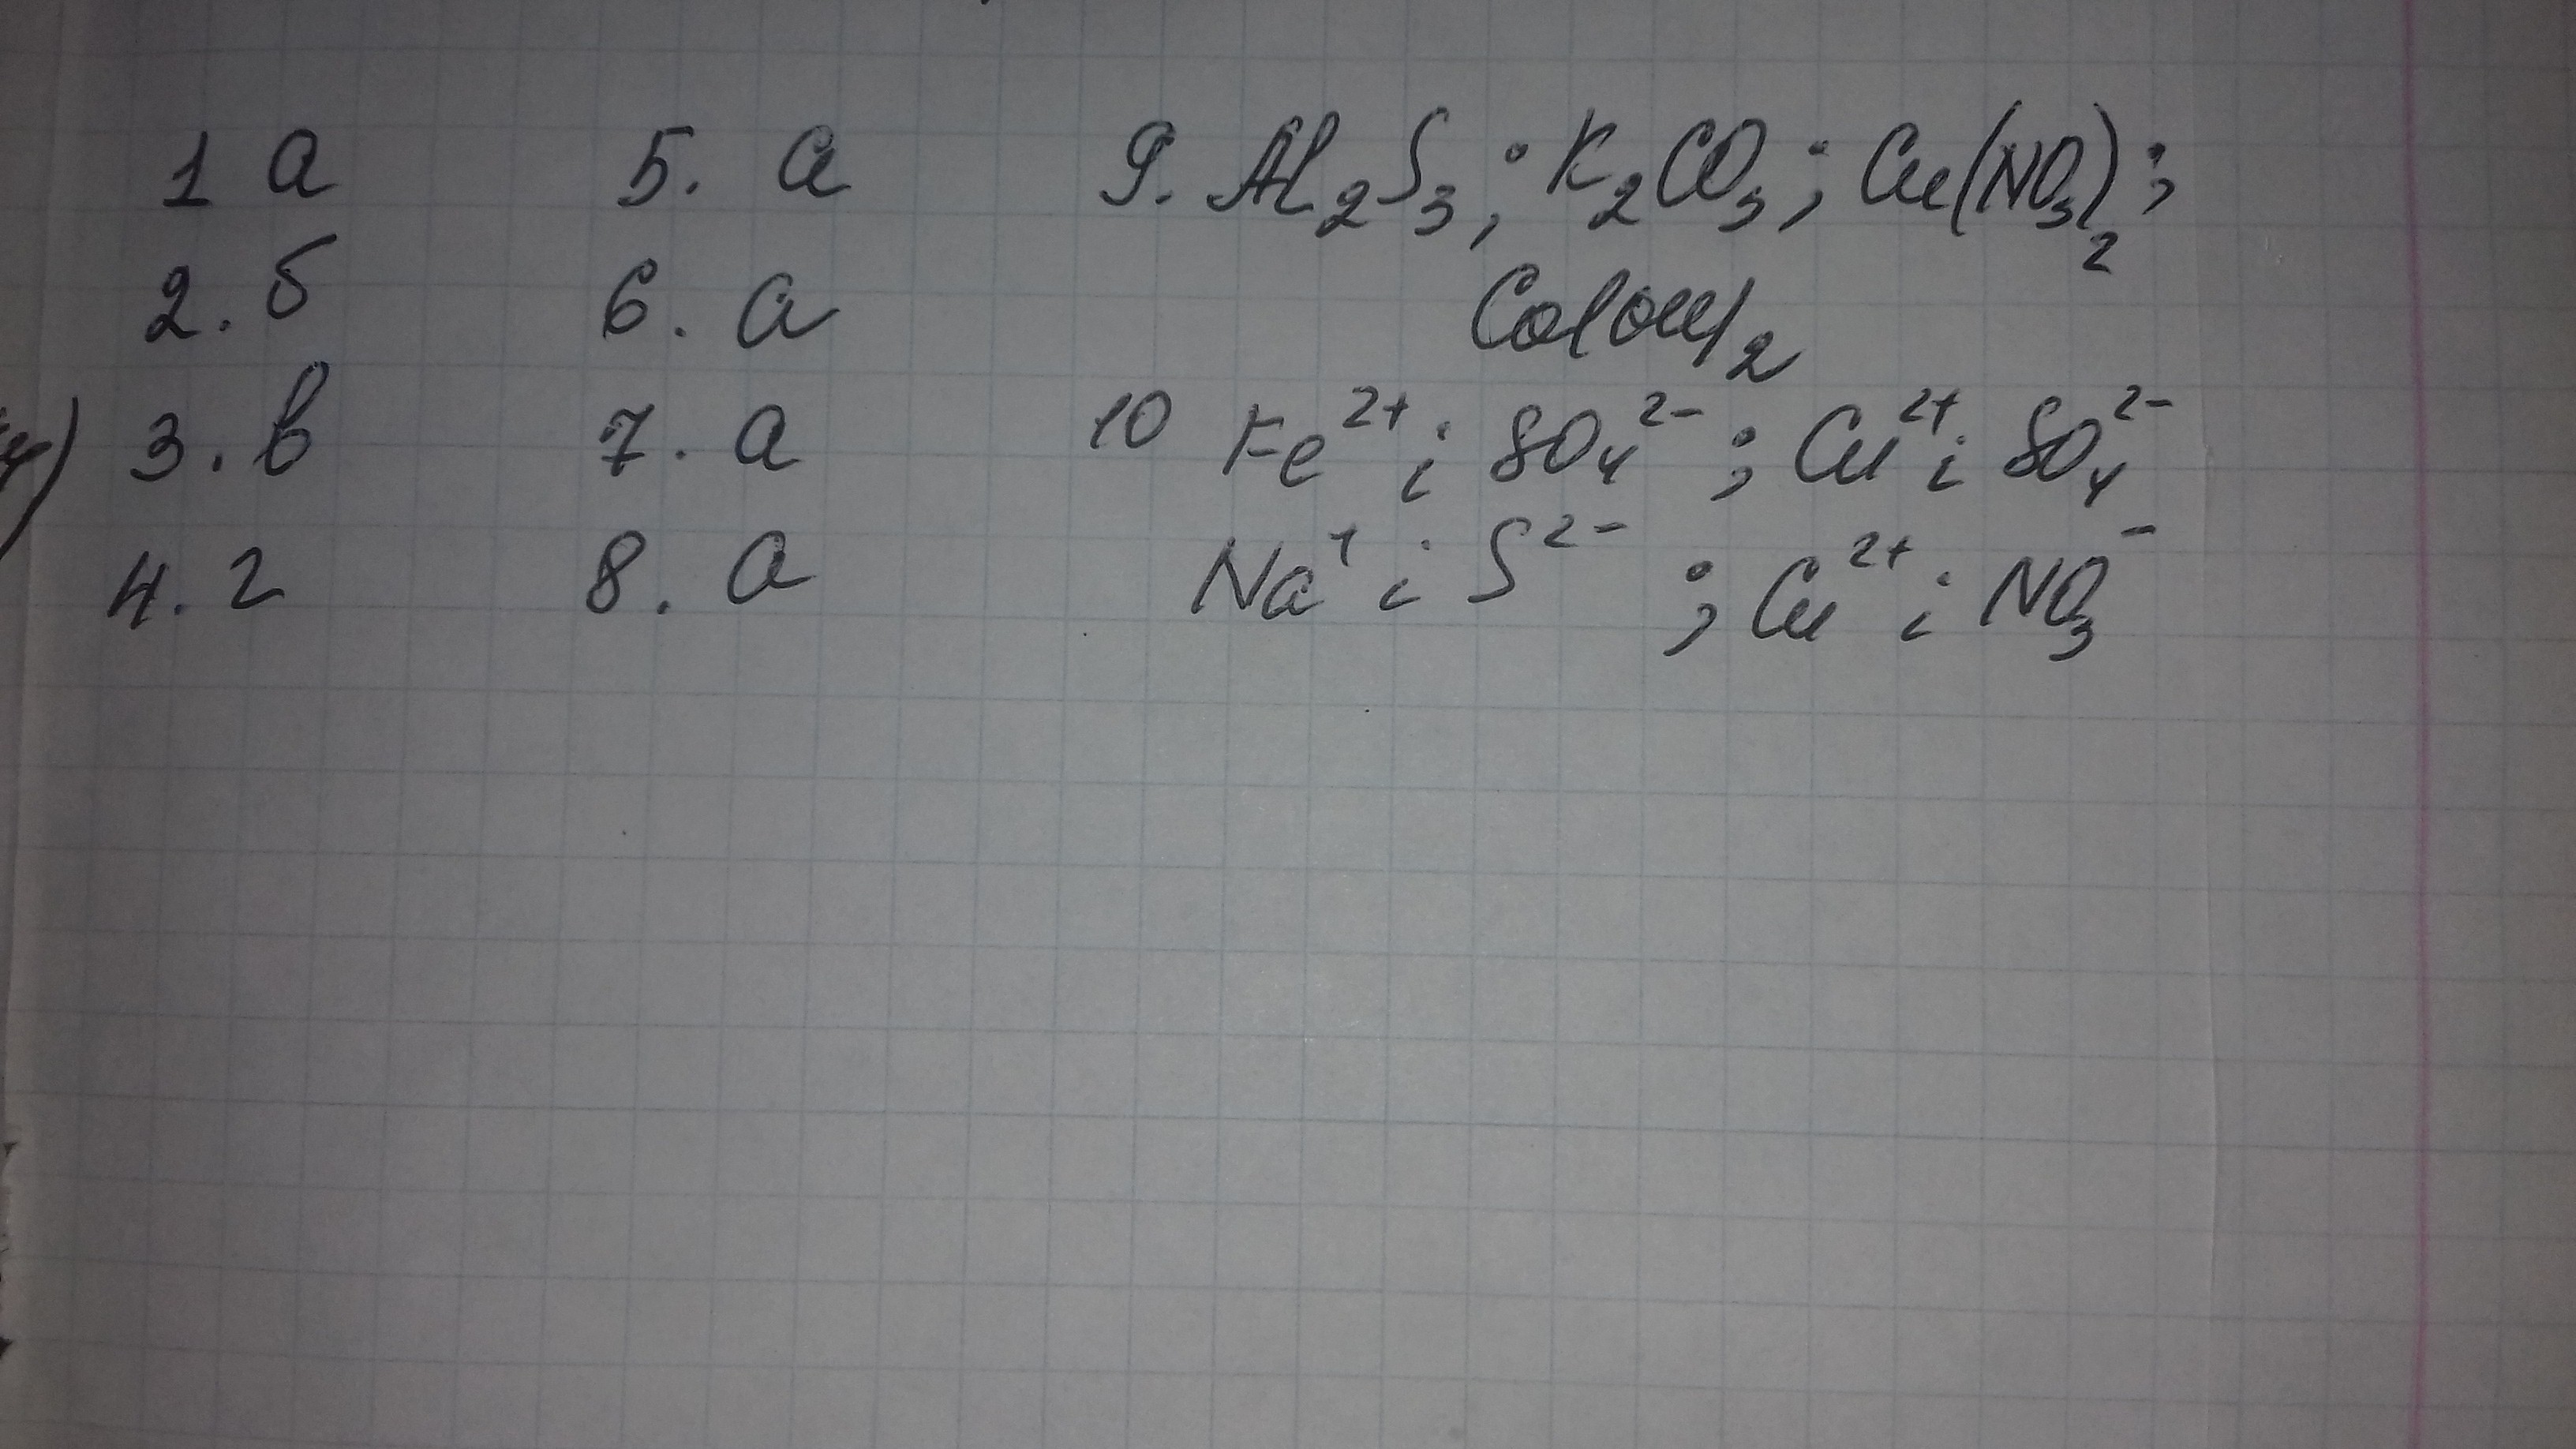 1 а
2. б
3. в
4. г
5. а
6. а
7. а
8. а
9. Al₂S₃; K₂CO₃; Cu(NO₃)₂;
Ca(OH)₂
10 Fe²⁺ і SO₄²⁻; Cu²⁺ і SO₄²⁻
Na⁺ і S²⁻; Cu²⁺ і NO₃⁻